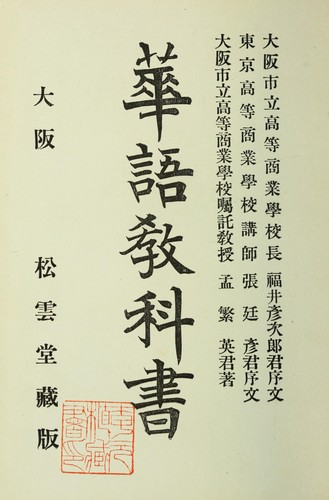 大阪市立高等商業學校長 福井彥次郎君序文
東京高等商業學校講師 張廷彥君序文
大阪市立高等商業學校囑託教授 孟繁英君著
華語教科書
大阪 松雲堂藏版